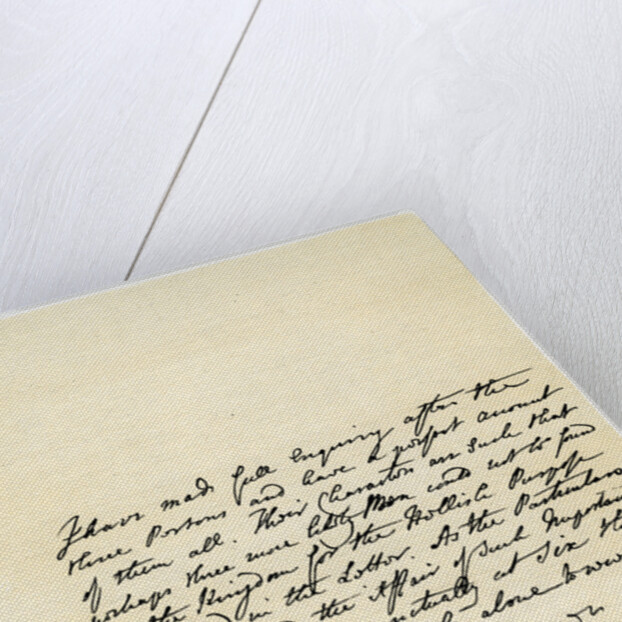 I have made full Enquiry after the
three Persons and have a perfect account
of them all. Their Characters are such that
perhaps three more likely Men could not be found
the Kingdom for the Hellish Purpose
in the Letter. As the Particulars
the Affair of such Importan
nctually at Six the
alone to